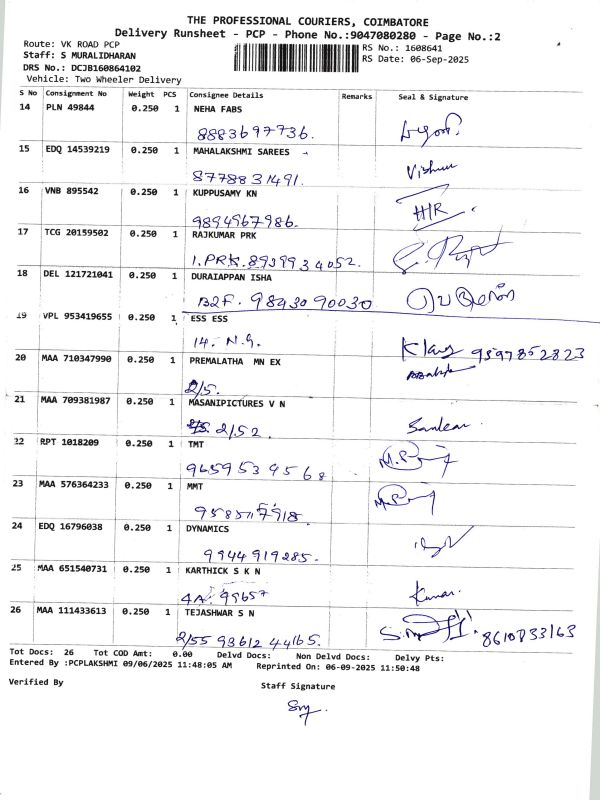 THE PROFESSIONAL COURIERS, COIMBATORE
Delivery Runsheet - PCP - Phone No.:9047080280 - Page No.:2
Route: VK ROAD PCP
RS No.: 1608641
Staff: S MURALIDHARAN
RS Date: 06-Sep-2025
DRS No.: DCJB160864102
Vehicle: Two Wheeler Delivery
S No Consignment No Weight PCS Consignee Details Remarks Seal & Signature
14 PLN 49844 0.250 1 NEHA FABS
8883697736.
15 EDQ 14539219 0.250 1 MAHALAKSHMI SAREES
8778831491.
16 VNB 895542 0.250 1 KUPPUSAMY KN
9894967986.
17 TCG 20159502 0.250 1 RAJKUMAR PRK
1.PRK.8939934052.
18 DEL 121721041 0.250 1 DURAIAPPAN ISHA
B2F. 9843090030
19 VPL 953419655 0.250 1 ESS ESS
14. N.G. 9597852823
20 MAA 710347990 0.250 1 PREMALATHA MN EX
2/5.
21 MAA 709381987 0.250 1 MASANIPICTURES V N
2/52. Sankar.
22 RPT 1018209 0.250 1 TMT
9659534568
23 MAA 576364233 0.250 1 MMT
24 EDQ 16796038 0.250 1 DYNAMICS
9944919285.
25 MAA 651540731 0.250 1 KARTHICK S K N
4A. 99657 Kumar.
26 MAA 111433613 0.250 1 TEJASHWAR S N
2/55 98612 44165.
Tot Docs: 26 Tot COD Amt: 0.00 Delvd Docs: Non Delvd Docs: Delvy Pts:
Entered By :PCPLAKSHMI 09/06/2025 11:48:05 AM Reprinted On: 06-09-2025 11:50:48
Verified By
Staff Signature